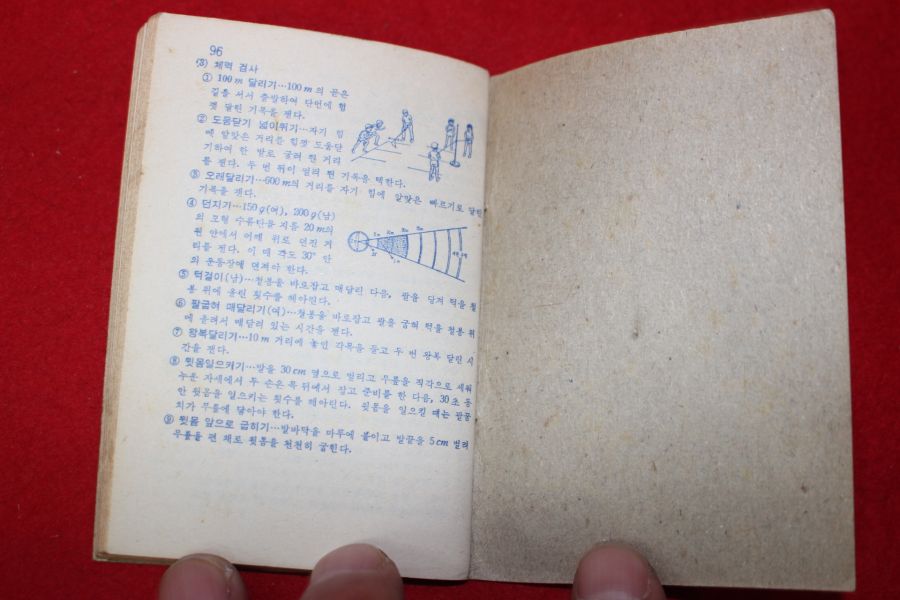 96
(3) 체력 검사
① 100m 달리기…100m의 곧은
길을 서서 출발하여 단번에 힘
껏 달린 기록을 잰다.
② 도움닫기 넓이뛰기…자기 힘
에 알맞은 거리를 힘껏 도움닫
기하여 한 발로 굴러 뛴 거리
를 잰다. 두 번 뛰어 멀리 뛴 기록을 택한다.
③ 오래달리기…600m의 거리를 자기 힘에 알맞은 빠르기로 달린
기록을 잰다.
④ 던지기…150g(여), 200g(남)
의 모형 수류탄을 지름 20m의
원 안에서 어깨 위로 던진 거
리를 잰다. 이 때 각도 30° 안
의 운동장에 던져야 한다.
⑤ 턱걸이(남)…철봉을 바로잡고 매달린 다음, 팔을 당겨 턱을 철
봉 위에 올린 횟수를 헤아린다.
⑥ 팔굽혀 매달리기(여)…철봉을 바로잡고 팔을 굽혀 턱을 철봉 위
에 올려서 매달려 있는 시간을 잰다.
⑦ 왕복달리기…10m 거리에 놓인 각목을 들고 두 번 왕복 달린 시
간을 잰다.
⑧ 윗몸일으키기…발을 30cm 옆으로 벌리고 무릎을 직각으로 세워
누운 자세에서 두 손은 목 뒤에서 잡고 준비를 한 다음, 30초 동
안 윗몸을 일으키는 횟수를 헤아린다. 윗몸을 일으킬 때는 팔꿈
치가 무릎에 닿아야 한다.
⑨ 윗몸 앞으로 굽히기…발바닥을 마루에 붙이고 발끝을 5cm 벌려
무릎을 편 채로 윗몸을 천천히 굽힌다.